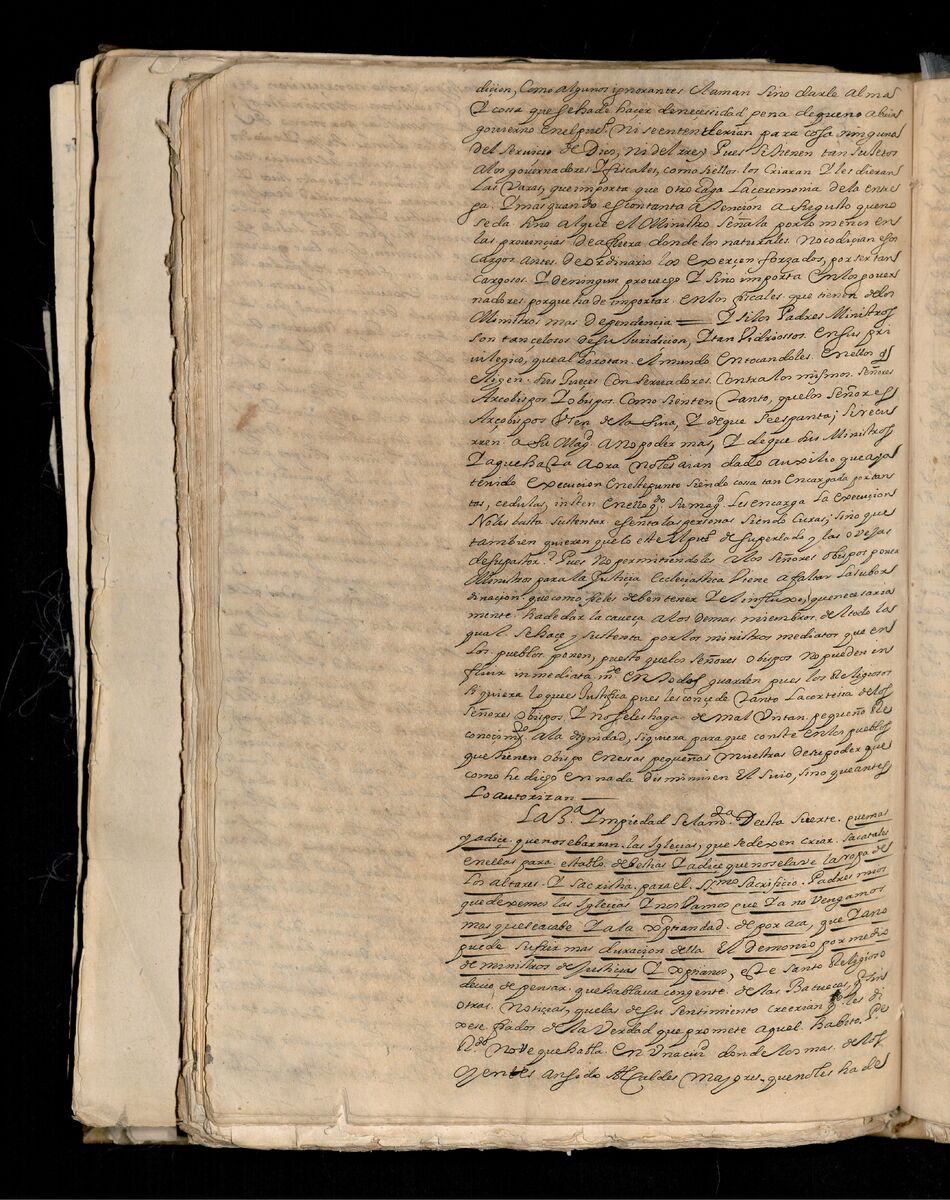 dicion, Como algunos ignorantes llaman sino darle al ma
Y cosa que se ha de hacer de necesidad pena de que no abria
govierno en el pueº. Ni se entenderian para cosa ninguna
del servicio de Dios, ni del rrey. Pues si tienen tan sujetos
a los governadores Y fiscales, como si ellos los criaran Y les dieran
Las Varas, que importa que otro haga La ceremonia de la entre
ga. Y mas quando es con tanta atencion a su gusto que no
se da sino al que el Ministro señala por lo menos en
las provincias de afuera donde los naturales. No codician esos
Cargos antes. De ordinario los exercen forzados, por ser tan
Cargosos. Y de ningun provecho Y si no importa en los gover
nadores porque ha de importar en los fiscales. que tienen de los
Ministros mas dependencia = Y si los Padres Ministros
son tan celosos de su Juridicion, Y tan Vidriossos. en sus pri
vilegios, que alborotan el mundo en tocandoles. en ellos q
eligen. sus Jueces Conservadores. Contra los mismos. señores
Arcobispos Y obispos. Como sienten tanto, que los señores
Arçobispos Usen de la suia, Y de que se espanta; si recu
rren. a su Magd. a no poder mas, Y de que sus Ministros
Y a que hasta aora no les aian dado auxilio que aya
tenido execucion en este punto siendo cosa tan encargada por tan
tas, cedulas, insten en ello qdo su magd. Les encarga La execucion
No les basta sustentar esentas las personas siendo Curas; sino que
tambien quieran que lo esté el pueº de su perlado y las ovejas
de su pastor. Pues No permitiendoles a los señores obispos poner
Ministros para la Justicia Ecclesiastica Viene a faltar La subor
dinacion. que como fieles deben tener Y el influxo, que necesaria
mente. ha de dar la caveça a los demas miembros, de todo lo
qual. se haçe y sustenta por los ministros mediatos que en
Los. pueblos ponen, puesto que los señores obispos no pueden in
fluir inmediata mte en todos guarden pues los Religiosos
siquiera lo que es Justicia pues les conçede tanto La cortecia de los
señores obispos. Y no se les haga de mal Un tan pequeño Re
conocimto. a la dignidad, siquiera para que conste en los pueblos
que tienen obispo en esas pequeñas muestras de su poder que
como he digo en nada disminuien El suio, sino que antes
Lo autorizan —
La 3ª. Impiedad se la mda. De esta suerte. que mas
y adice. que no se barran. las Iglecias, que se dexen criar. sacatales
en ellas para. establo. de bestias Y adice que no se lave la ropa de
Los altares. Y sacristia. para el. Stmo Sacrificio. Padres mios
que dexemos las Iglecias Y nos Vamos que Ya no Vengamos
mas que se acabe Ya la xptiandad. de por aca, que Ya no
puede sufrir mas duracion della El Demonio por medio
de ministros de Justicias Y xpianos, este santo Religioso
devio, de pensar. que hablava con gente. de las Batuecas, q sin
otras. Noticias, que las de su sentimiento creerian q. les di
xese fiados de la Verdad que promete aquel habito. Pe
Rdo No Ve que habla. en Una ciud donde los mas. de los
oyentes. an sido Alcaldes Majores, que no les ha de